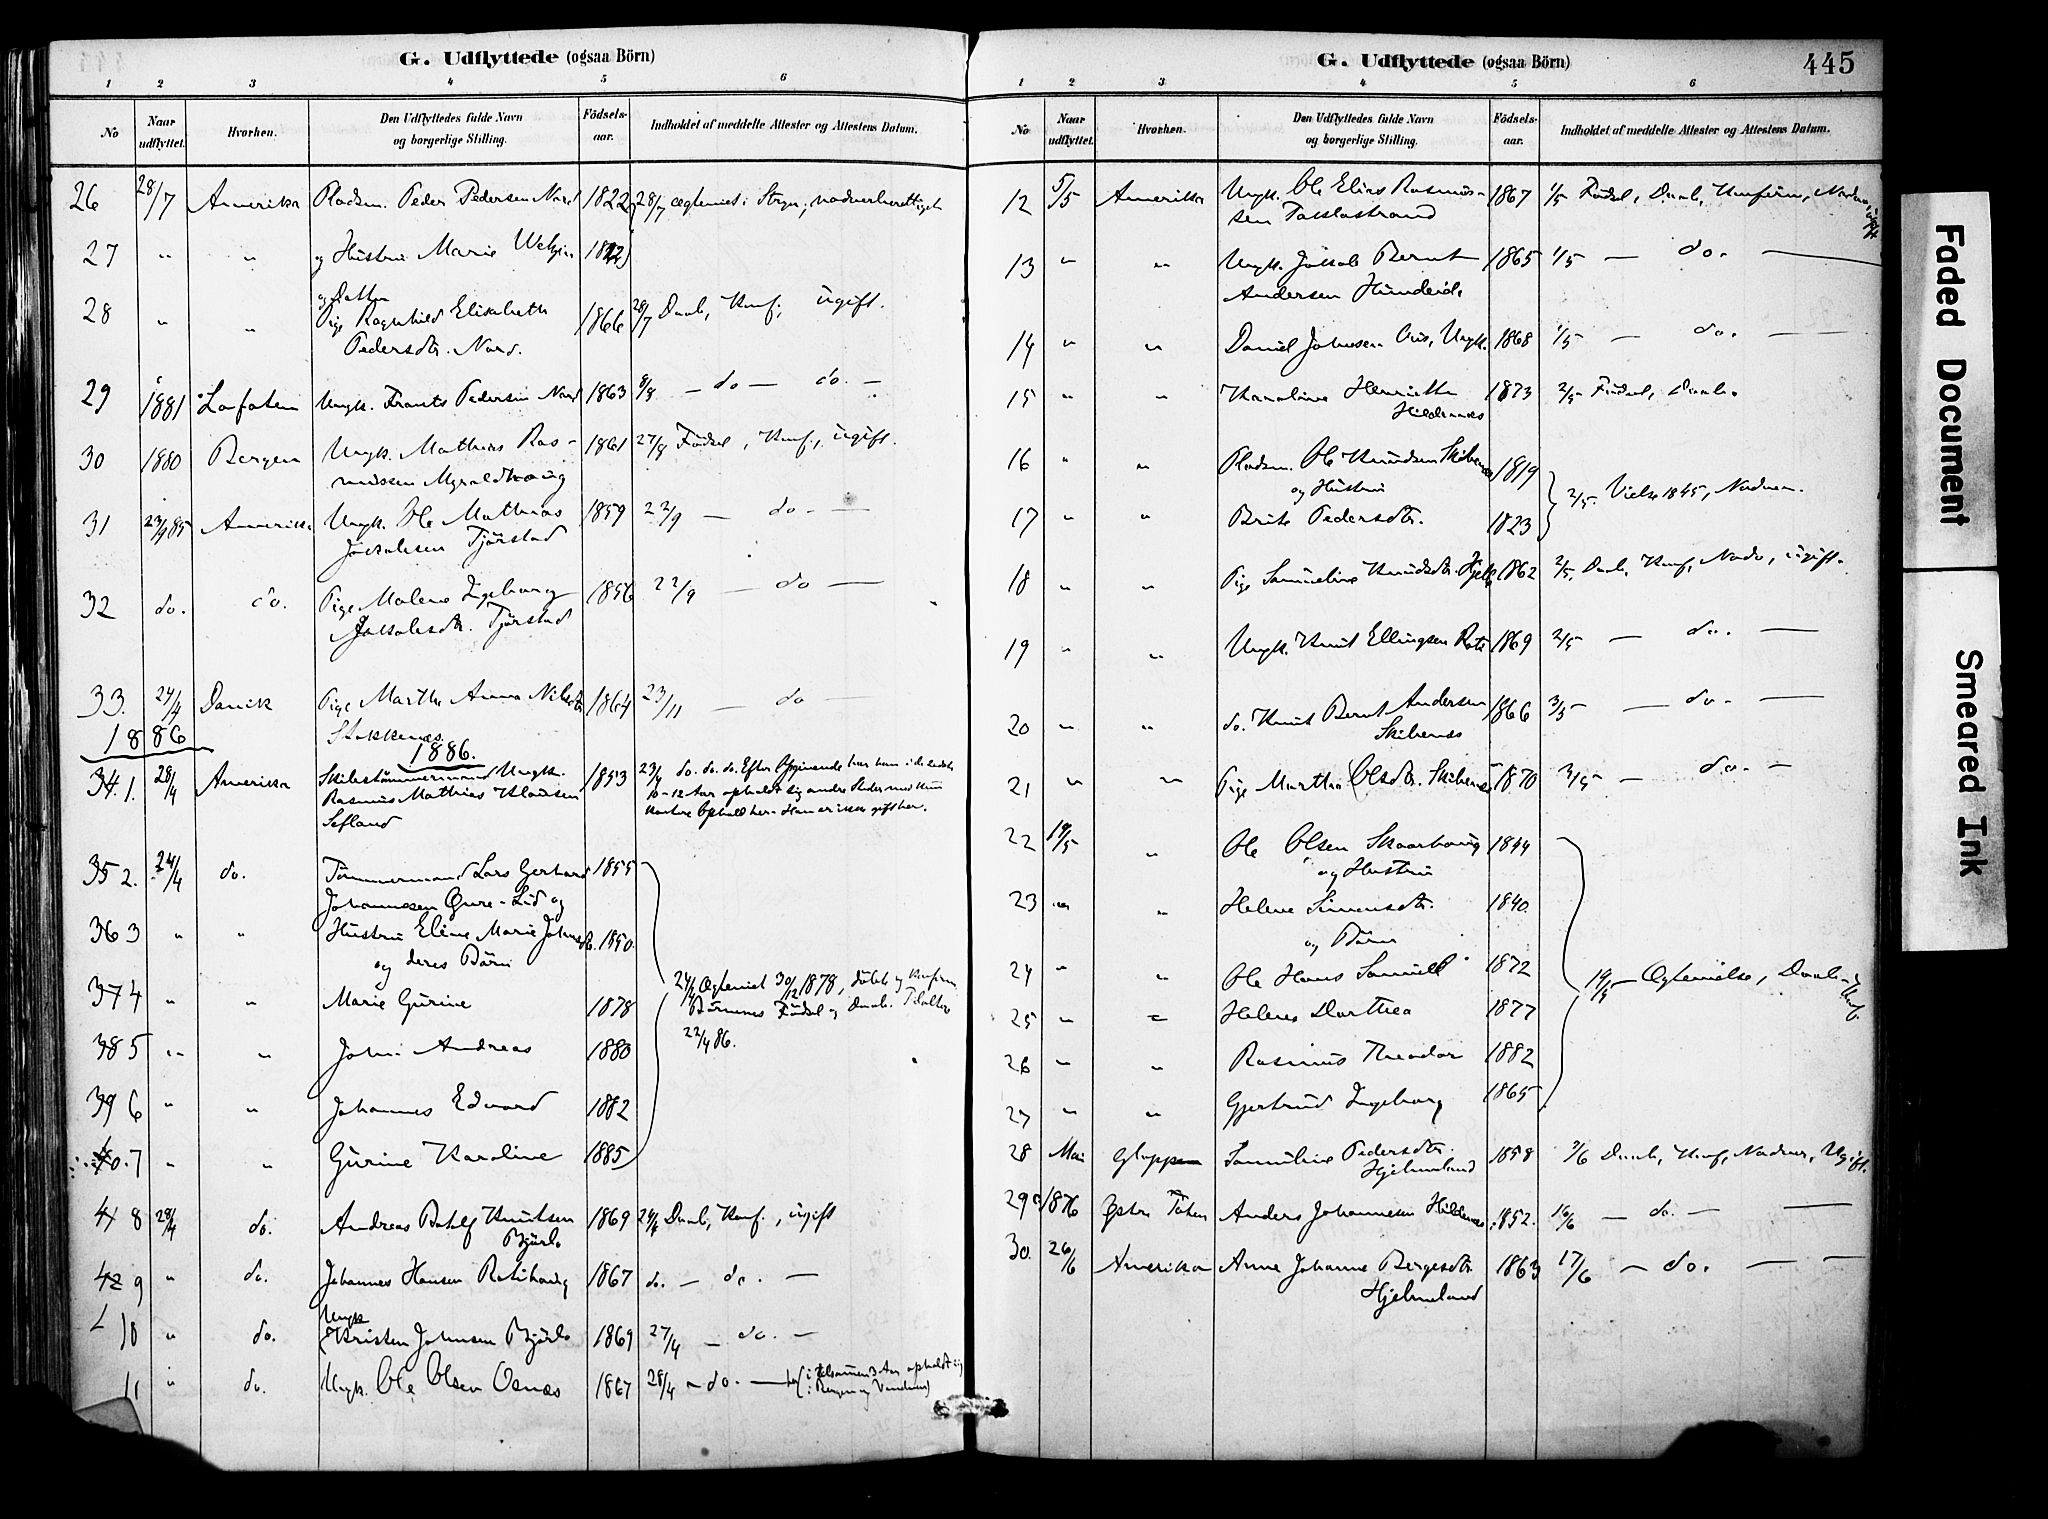 G. Udflyttede (ogsaa Börn)
1 2 3 4 5 6
No
Naar udflyttet.
Hvorhen.
Den Udflyttedes fulde Navn og borgerlige Stilling.
Födsels-aar.
Indholdet af meddelte Attester og Attestens Datum.
26 28/7 Amerika Pladsm. Peder Pedersen Nord 1822 28/7 ægteviet i Stryn; nadverberettiget
27 " " og Hustru Marie
28 " " og Datter Pige Ragnhild Elisabeth 1866 28/7 Daab, Konf; ugift.
Pedersdtr. Nord.
29 1881 Lofoten Ungk. Frants Pedersen Nord 1863 8/8 — do — do. —
30 1880 Bergen Ungk. Mathias Ras- 1861 27/8 Födsel, Konf., ugift.
mussen Myroldhaug
31 23/9 85 Amerika Ungk. Ole Mathias 1859 22/9 — do. —
Jakobsen Tjörstad
32 do. do. Pige Malene Ingeborg 1856 22/9 — do —
Jakobsdtr. Tjörstad
33. 24/4 Davik Pige Marthe Anna 1864 23/11 — do —
Stokkenæs.
1886
1886.
34.1. 28/4 Amerika Skibstömmermand Ungk. 1853 23/4 do. do. do. Efter Opgivende har han i de sidste
Rasmus Mathias Klausen 10-12 Aar opholdt sig andre Steder med kun
Sefland kortere Ophold her. Han er ikke gift her.
35 2. 24/4 do. Tömmermand Lars Gerhard 1855
Johannesen Övre-Lid og
36 3 " " Hustru Eline Marie 1850.
og deres Börn
24/4 Ægteviet 30/12 1878, döbte og konfirm.
37 4 " " Marie Gurine 1878 Börnenes Födsel og Daab.
22/4 86.
38 5 " " Andreas 1880
39 6 " " Johannes Edvard 1882
40.7 " " Gurine Karoline 1885
41 8 28/4 do. Andreas Knutsen 1869 24/4 Daab, Konf., ugift
Björlo
42 9 " do. Johannes Hansen 1867 do. — do. —
10 " do. Ungk Kristen Johnsen Björlo 1869 27/4 — do. —
11 " do. Ungk. Ole Olsen Osnæs 1867 28/4 — do. — Aar opholdt sig
i Bergen og
G. Udflyttede (ogsaa Börn)
445
1 2 3 4 5 6
No
Naar udflyttet.
Hvorhen.
Den Udflyttedes fulde Navn og borgerlige Stilling.
Födsels-aar.
Indholdet af meddelte Attester og Attestens Datum.
12 5/5 Amerika Ungk. Ole Elias Rasmus- 1867 1/5 Födsel, Daab, Konfirm,
sen Taklostrand
13 " " Ungk. Jakob Bernt 1865 1/5 — do. —
Andersen Hundeide
14 " " Daniel Johnsen Ungk. 1868 1/5 — do. —
15 " " Karoline Henriette 1873 2/5 Födsel, Daab.
Hildenæs
16 " " Pladsm. Ole Knudsen Skibenæs 1819
og Hustru
2/5. Vielse 1845, Nadver.
17 " " Brite Pedersdtr. 1823
18 " " Pige Samueline Knudsdtr. 1862 2/5. Daab, Konf, Nadv, ugift.
19 " " Ungk. Knut Ellingsen 1869 2/5 — do. —
20 " " do. Knut Bernt Andersen 1866 3/5 — do. —
Skibenæs
21 " " Pige Marthe Olsdtr. Skibenæs 1870 3/5 — do. —
22 19/5 " Ole Olsen Skaarhaug 1844
og Hustru
23 " " Helene Simonsdtr. 1840.
og Börn
24 " " Ole Hans Samuel 1872
19/5 — Ægtevielse, Daab, Konf.
25 " " Helene Dorthea 1877
26 " " Rasmus Theodor 1882
27 " " Gjertrud Ingeborg 1865
28 Mai Gloppen Samueline Pedersdtr. 1858 2/6 Daab, Konf, Nadver, Ugift.
Hjelmeland
29 1876 Östre Toten Anders Johannesen Hildenæs 1852. 16/6 — do. —
30. 26/6 Amerika Anne Johanne Börgesdtr. 1863 17/6 — do. —
Hjelmeland
Faded Document
Smeared Ink